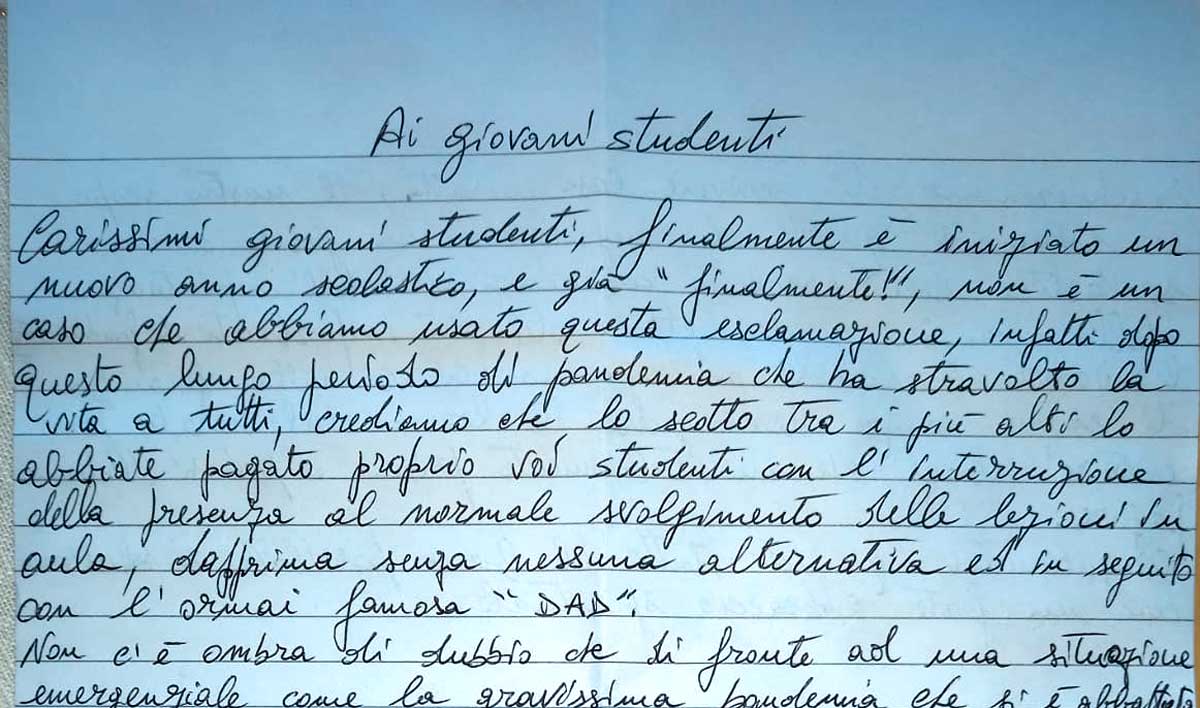 Ai giovani studenti
Carissimi giovani studenti, finalmente è iniziato un
nuovo anno scolastico, e già "finalmente!", non è un
caso che abbiamo usato questa esclamazione, infatti dopo
questo lungo periodo di pandemia che ha stravolto la
vita a tutti, crediamo che lo scotto tra i più alti lo
abbiate pagato proprio voi studenti con l'interruzione
della presenza al normale svolgimento delle lezioni in
aula, dapprima senza nessuna alternativa ed in seguito
con l'ormai famosa "DAD".
Non c'è ombra di dubbio che di fronte ad una situazione
emergenziale come la gravissima pandemia che si è abbattuta